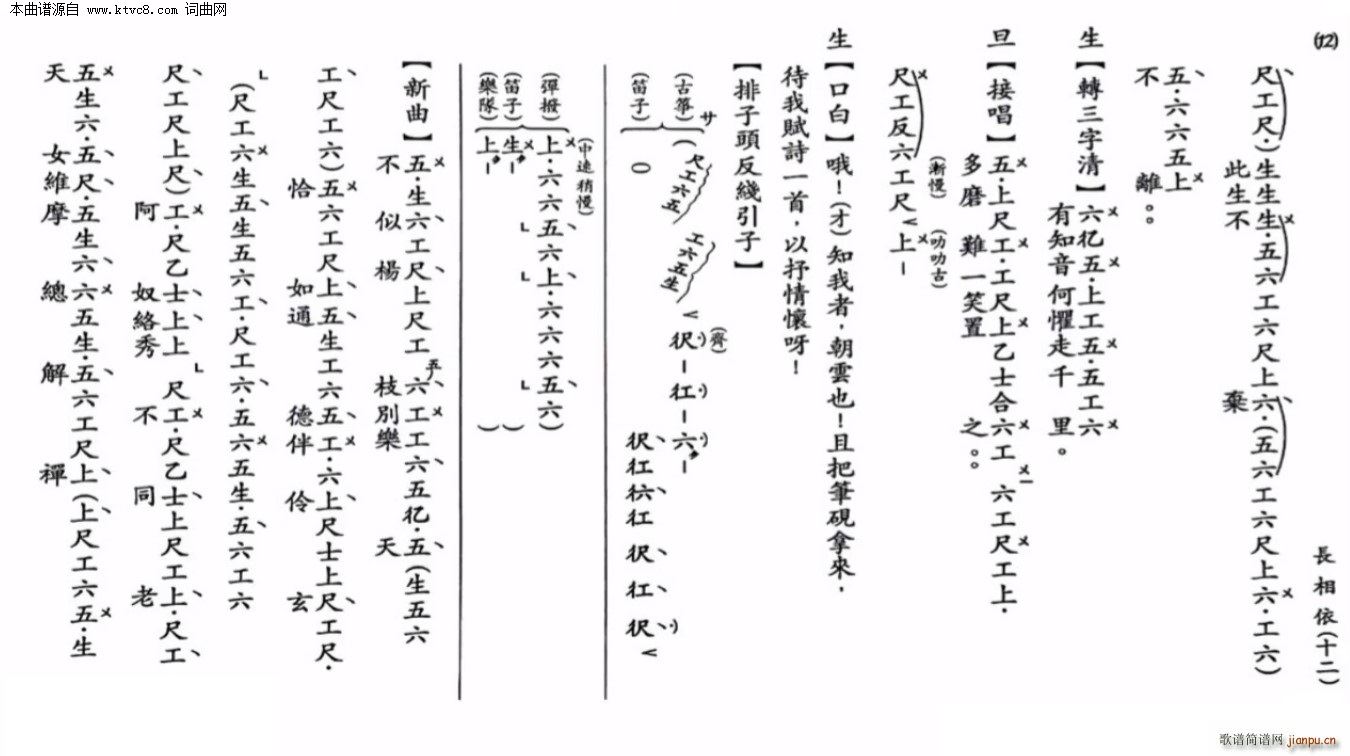 本曲谱源自 www.ktvc8.com 词曲网
(12)
長相依(十二)
尺工尺.)生生生.五六工六尺上六.(五六工六尺上六.工六)
此生不 棄
五.六六五上
不 離。。
生【轉三字清】六伬五.上工五.五工六
有知音何懼走千 里。
旦【接唱】五.上尺工.工尺上乙士合.六工 六工尺工上.
多磨 難一笑置 之。。
尺工反六工尺 上–
(漸慢) (叻叻古)
生【口白】哦!(才)知我者,朝雲也!且把筆硯拿來,
待我賦詩一首,以抒情懷呀!
【排子頭反綫引子】
(古箏) サ (尺工六五 工六五生 伬–仜–六–
(齊)
(笛子) 0 伬仜 仜伬仜伬
(中速稍慢)
(彈撥) 上.六六五六上.六六六五六)
(笛子) 生– )
(樂隊) 上– )
【新曲】五.生六工尺上尺工六工工六五伬.五(生五六
不 似楊 枝別樂 天
工尺工六)五六工尺上五生工六五工.六上尺士上尺工尺.
恰 如通 德伴 伶 玄
(尺工六生五生五六工.尺工六.五六五生.五六工六
尺工尺上尺)工.尺乙士上上 尺工.尺乙士上尺工上.尺工
阿 奴絡秀 不 同 老
五生六.五尺.五生六六五生.五六工尺上(上尺工六五.生
天 女維摩 總 解 禪
歌谱简谱网 jianpu.cn